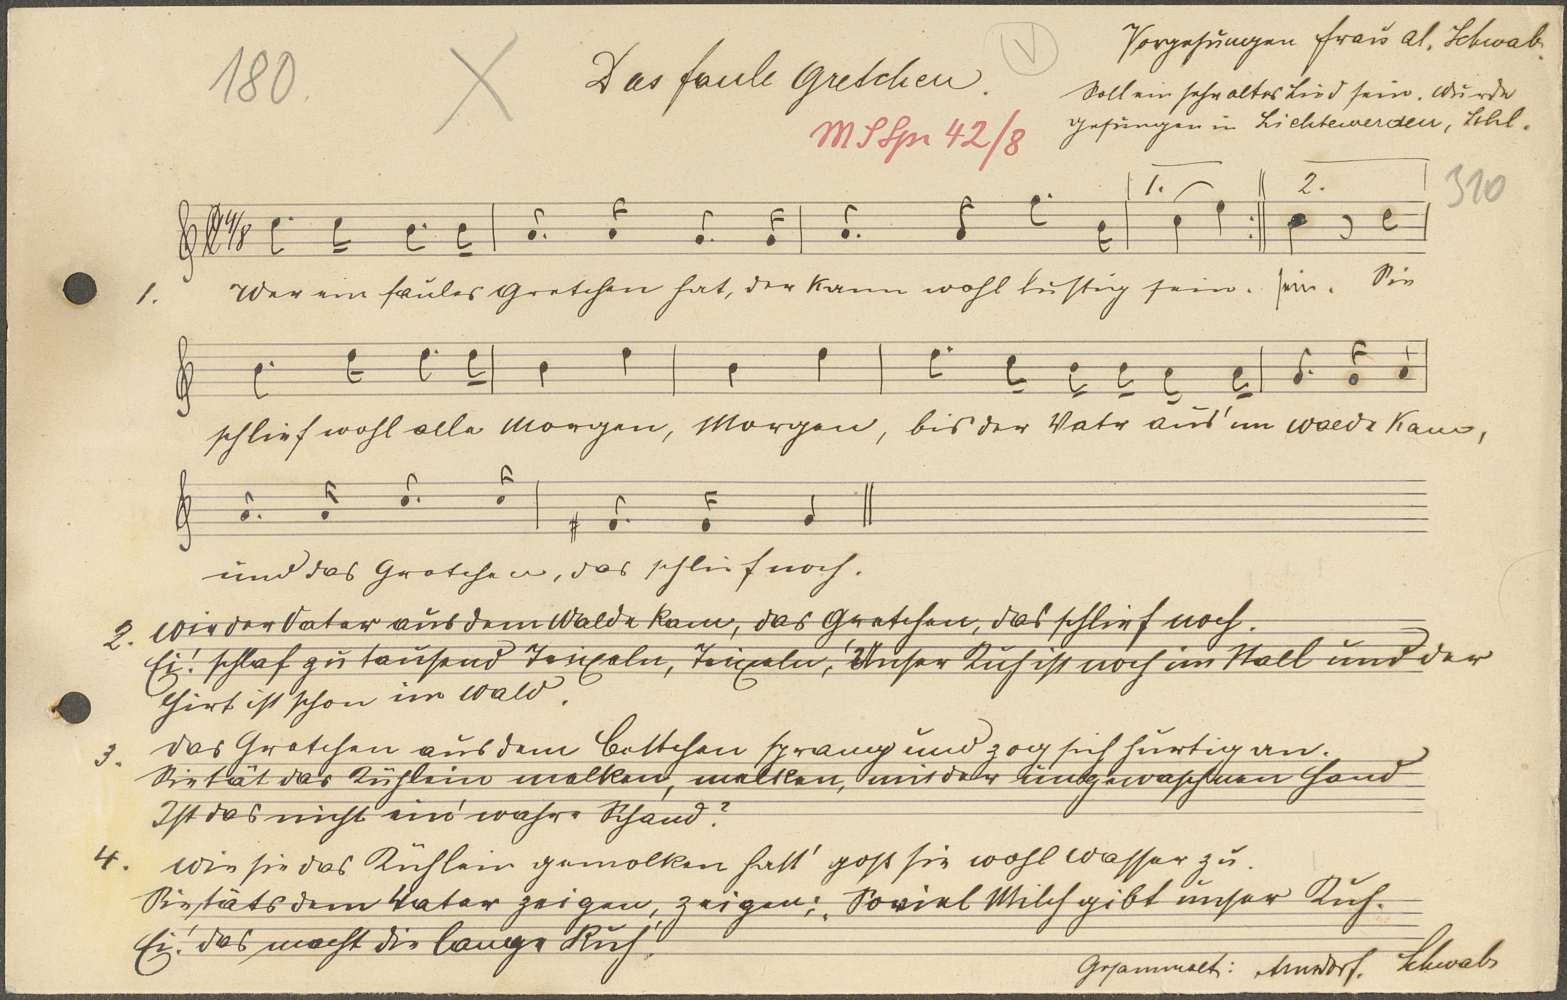 180.
Das faule Gretchen.
V
Vorgesungen Frau Al. Schwab.
Soll ein sehr altes Lied sein. Wurde
gesungen in Lichtewerden, Schl.
MS Spr 42/8
310
4/8
1.
2.
1. Wer ein faules Gretchen hat, der kann wohl lustig sein. sein. Sie
schlief wohl alle Morgen, Morgen, bis der Vatr aus'm Walde kam,
und das Gretchen, das schlief noch.
2. Wie der Vater aus dem Walde kam, das Gretchen, das schlief noch.
Ei! schlaf zu tausend Teixeln, Teixeln! Unser Kuh ist noch im Stall und der
Hirt ist schon im Wald.
3. Das Gretchen aus dem Bettchen sprang und zog sich hurtig an.
Sie tät das Kühlein melken, melken, mit der ungewaschnen Hand
Ist das nicht ein' wahre Schand?
4. Wie sie das Kühlein gemolken hatt' goß sie wohl Wasser zu.
Sie täts dem Vater zeigen, zeigen; Soviel Milch gibt unser Kuh.
Ei! das macht die lange Ruh!
Gesammelt: Schwab